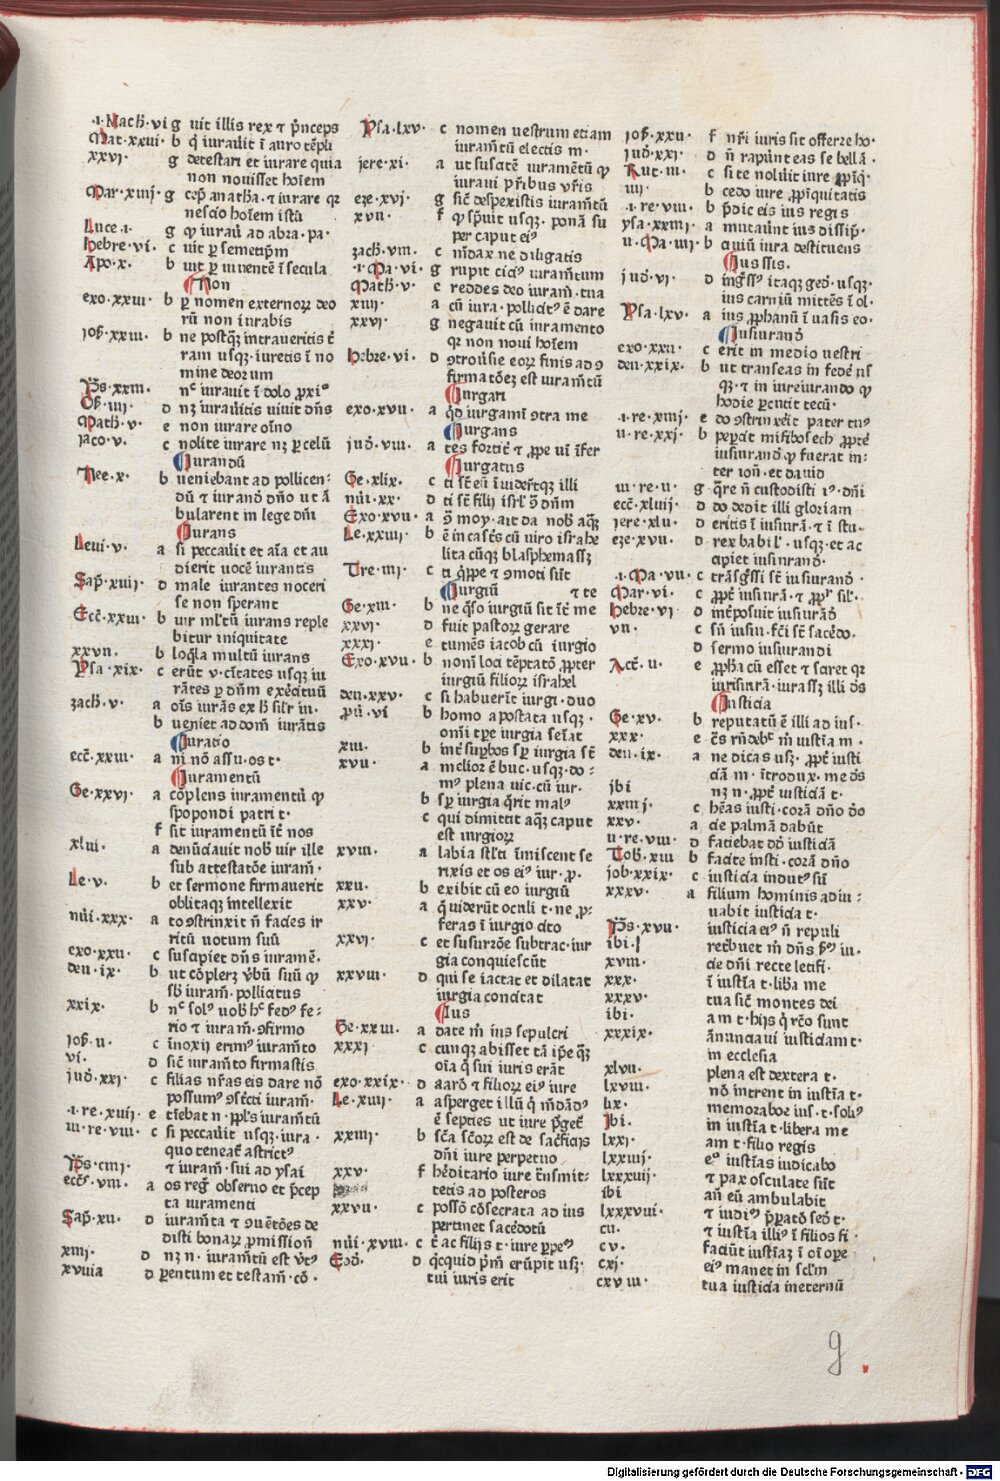 .i.Mach.vi g uit illis rex ⁊ p̄nceps
Mat.xxvi. b q̇ iurauit ī auro tēpli
xxvi. g detestari et iurare quia
non nouisset hoīem
Mar.xiiij. g cep̄ anatha. ⁊ iurare qr
nescio hoīem istū
Luce.i. g ꝙ iurauı̄ ad abra.pa.
hebre.vi. c uit ꝑ semetip̄m
Apo.x. b uit ꝑ uiuentē ī secula
Non
exo.xxiii. b ꝑ nomen externoꝝ deo
rū non iurabis
Ios.xxiii. b ne postqȝ intraueritis t̄
ram usqȝ.iuretis ī no
mine deorum
Ps̄.xxiii. nec iurauit ī dolo ꝓxiꝰ
Os̄.iiij. d nȝ iurauitis uiuit dn̄s
Math.v. e non iurare oīno
Jaco.v. c nolite iurare nȝ ꝑ celū
Iurandū
Nee.x. b ueniebant ad pollicen-
dū ⁊ iurand̄ dn̄o ut ā
bularent in lege dn̄i
Iurans
Leui.v. a si peccauit et aīa et au
dierit uocē iurantis
Sap̄.xviij. d male iurantes noceri
se non sperant
Ecc̄.xxiii. b uir ml̄tū iurans reple
bitur iniquitate
xxvii. b loqla multū iurans
Psa.xix. c erūt v.cītates usqȝ iu
rātes ꝑ dn̄m exercituū
zach.v. a oīs iurās ex h̄ sil'r iu.
b ueniet ad dom̄ iurātis
Iuratio
ecc̄.xxiii. a ni nō assu.os t.
Iuramentū
Ge.xxvi. a cōplens iuramentū ꝙ
spopondi patri t.
f sit iuramentū īt̄ nos
xliii. a denūciauit nob̄ uir ille
sub attestatōe iuram̄.
Le.v. b et sermone firmauerit
oblitaqȝ intellexit
nūi.xxx. a to ꝯstrinxit n̄ facies ir
ritū uotum suū
exo.xxii. c suscipiet dn̄s iuramē.
deu.ix. b ut cōpleret v̄bū suū ꝙ
sb̄ iuram̄.pollicitus
xxix. b nec solꝰ uob̄ hc fedꝰ fe-
rio ⁊ iuram̄.ꝯfirmo
Ios̄.ii. c īnoxij erimꝰ iuram̄to
vi. d sic̄ iuram̄to firmastis
Jud̄.xxi. c filias nr̄as eis dare nō
possumꝰ ꝯstc̄ti iuram̄.
.i.re.xiiij. e tīebat n.ppl's iuram̄tū
iii.re.viii. c si peccauit usqȝ.iura.
quo teneat̄ astrictꝰ
Ps̄.ciiij. ⁊ iuram̄.sui ad ysai
ecc̄s.viii. a os reḡ obseruo et p̄cep
ta iuramenti
Sap̄.xii. d iuram̄ta ⁊ ꝯuētōes de
disti bonaꝝ ꝓmission̄
xiiij. d nȝ n.iuram̄tū est v̄tꝰ
xviiia d ꝑentum et testam̄.cō.
Psa.lxv. c nomen uestrum etiam
iuram̄tū electis m.
Jere.xi. a ut suscitē iuramētū ꝙ
iuraui p̄ribus vr̄is
eze.xvj. g sic̄ despexistis iuram̄tū
xvii. f ꝙ sp̄uit usqȝ.ponā su
per caput eiꝰ
zach.viii. c m̄dax ne diligatis
.i.Ma.vi. g rupit citiꝰ iuram̄tum
Math.v. c reddes deo iuram̄.tua
xiiij. a cū iura.pollicitꝰ ē dare
xxvi. g negauit cū iuramento
qr non noui hoīem
hebre.vi. d ꝯtrouꝰsie eoꝝ finis ad ꝯ
firmatōeȝ est iuram̄tū
Iurgari
exo.xvii. a qd̄ iurgamī ꝯtra me
Iurgans
Jud̄.viii. a tes fortit̄ ⁊ ꝓpe uī īfer
Iurgatus
Ge.xlix. c ti st̄ eū īuiderūtqȝ illi
nūi.xx. d ti st̄ filij isrl' ꝯ dn̄m
Exo.xvii. a ꝯ moy.ait da nob̄ aqȝ
Le.xxiiij. b ē in castc̄ cū uiro israhe
lita cūqȝ blasphemassȝ
Tre.iiij. c ti qp̄pe ⁊ ꝯmoti sūt
Iurgiū ⁊ te
Ge.xiii. b ne qso iurgiū sit īt̄ me
xxvi. d fuit pastoꝝ gerare
xxxi. e tumēs iacob cū iurgio
Exo.xvii. b nom̄ loci tēptatō ꝓpter
iurgiū filioꝝ israhel
deu.xxv. c si habuerīt iurgi.duo
pū.vi b homo apostata usqȝ.
om̄i tꝑe iurgia seīat
xiii. b int̄ suꝑbos sꝑ iurgia st̄
xvii. a melior ē buc.usqȝ.do-
mꝰ plena uic.cū iur.
b sꝑ iurgia qrit malꝰ
c qui dimittit aqȝ caput
est iurgioꝝ
xviii. a labia stl'ti īmiscent se
rixis et os eiꝰ iur.ꝓ.
xxii. b exibit cū eo iurgiū
xxv. a q̇ uiderūt oculi t.ne ꝓ-
feras ī iurgio cito
xxvi. c et susurrōe subtrac.iur
gia conquiescūt
xxviii. d qui se iactat et dilatat
iurgia concitat
Ius
Ge.xxiii. a date m̄ ius sepulcri
xxxi c cunqȝ abisset tā ip̄e qȝ
oīa q̄ sui iuris erāt
exo.xxix. d aarō ⁊ filioꝝ eiꝰ iure
Le.xiiij. a asperget illū q̇ m̄dādꝰ
ē septies ut iure p̄get̄
xxiiij. b sc̄a sc̄oꝝ est de sac̄ficijs
dn̄i iure perpetuo
xxv. f h̄editario iure t̄nsmit-
tetis ad posteros
xxvii. c possō cōsecrata ad ius
pertinet sac̄dotū
nūi.xviii. c t̄ ac filijs t.iure ꝑpeꝰ
Eod̄. d qcquid p̄m̄ erūpit usȝ.
tui iuris erit
Ios̄.xxii. f nr̄i iuris sit offerre ho.
Jud̄.xxi. d n̄ rapūnt eas se bellā.
Rut.iii. c si te noluit iure ꝓpīq̇.
iiij. b cedo iure ꝓpīquitatis
.i.re.viii. b p̄dic eis ius regis
ysa.xxiiij. a mutauūt ius dissip̄.
ii.Ma.iiij. b auiū iura destituens
Iussis.
Jud̄.vj. d īgss̄ꝰ itaqȝ ged̄.usqȝ.
ius carniū mittēs ī ol.
Psa.lxv. a ius ꝓphanū ī uasis eo.
Iusiurand̄
exo.xxii. c erit in medio uestri
deu.xxix. b ut transeas in fedē nr̄
qȝ.⁊ in iureiurando ꝙ
hodie ꝑcutit tecū.
.i.re.xiiij. e do ꝯstrinxīt pater tuꝰ
ii.re.xxj. b peꝑcit mifibosech ꝓpt̄
iusiurand̄ ꝙ fuerat in-
ter ion̄.et dauid
iii.re.ii. g qre n̄ custodisti iꝰ.dn̄i
ecc̄.xliiij. d do dedit illi gloriam
Jere.xlii. d eritis ī iusiurā.⁊ ī stu.
eze.xvii. d rex babil'.usqȝ.et ac
cipiet iusiurand̄.
.i.Ma.vii. c trāsgssi st̄ iusiurand̄.
Mar.vi. c ꝓpt̄ iusiurā.⁊ ꝓpt̄ sil'.
hebre.vj d int̄posuit iusiurād̄
vii. c sn̄ iusiu.fc̄i st̄ sac̄do.
d sermo iusiurandi
Acc̄.ii. e ꝓph̄a cū esset ⁊ sciret qr
iurisiurā.iurassȝ illi ds̄
Iusticia
Ge.xv. b reputatū ē illi ad ius.
xxx. e c̄s rn̄debc m̄ iustīa m.
deu.ix. a ne dicas usȝ.ꝓpt̄ iusti
ciā m.ītrodux.me ds̄
ibi nȝ n.ꝓpt̄ iusticiā t.
xxiiij. c h̄eas iusti.corā dn̄o d̄o
xxv. a cie palmā dabūt
ii.re.viii. d faciebat dd̄ iusticiā
Tob̄.xiii b facite iusti.corā dn̄o
Job.xxix. c iusticia indutꝰ sū
xxxv. a filium hominis adiu-
uabit iusticia t.
Ps̄.xvii. iusticia eiꝰ n̄ repuli
ibi. retbuet m̄ dn̄s s̄ꝰ iu.
xviii. cie dn̄i recte letifi.
xxx. ī iustīa t.libā me
xxxv. tua sic̄ montes dei
ibi. am t.hijs q̇ rco̅ sunt
xxxix. ānunciaui iusticiam t.
in ecclesia
xlvii. plena est dextera t.
lxviii. nō intrent in iustīa t.
lix. memorabor ius.t.soliꝰ
Ibi. in iustīa t.libera me
lxxi. am t.filio regis
lxxiiij. eo iustīas iudicabo
lxxxiiij. ⁊ pax osculate sūt
ibi an̄ eū ambulabit
lxxxviii. ⁊ iudiꝰ p̄ꝑatō sed̄ t.
cii. ⁊ iustīa illiꝰ ī filios fi.
cv. faciūt iustīaȝ ī oī tꝑe
cxj. eiꝰ manet in sc̄l'm
cxviii. tua iusticia ineternū
g
Digitalisierung gefördert durch die Deutsche Forschungsgemeinschaft - DFG